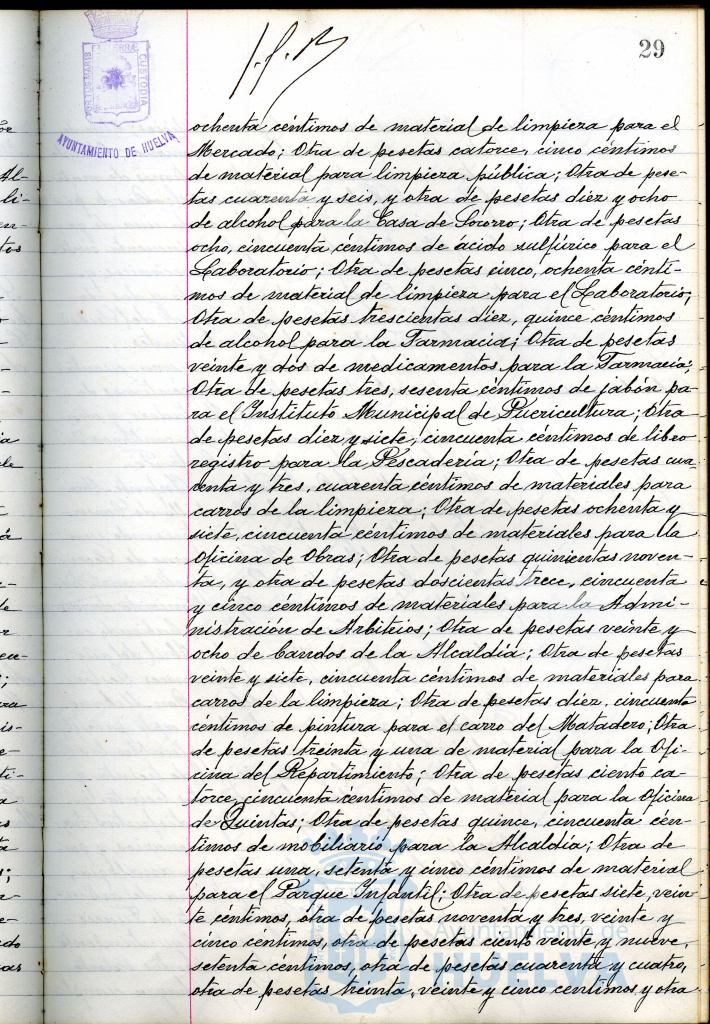 29
PORTUS MARIS
ET TERRAE
CUSTODIA
AYUNTAMIENTO DE HUELVA
ochenta céntimos de material de limpieza para el
Mercado; Otra de pesetas catorce, cinco céntimos
de material para limpieza pública; Otra de pese-
tas cuarenta y seis, y otra de pesetas diez y ocho
de alcohol para la Casa de Socorro; Otra de pesetas
ocho, cincuenta céntimos de ácido sulfúrico para el
Laboratorio; Otra de pesetas cinco, ochenta cénti-
mos de material de limpieza para el Laboratorio;
Otra de pesetas trescientas diez, quince céntimos
de alcohol para la Farmacia; Otra de pesetas
veinte y dos de medicamentos para la Farmacia;
Otra de pesetas tres, sesenta céntimos de jabón pa-
ra el Instituto Municipal de Puericultura; Otra
de pesetas diez y siete, cincuenta céntimos de libro
registro para la Pescadería; Otra de pesetas cua-
renta y tres, cuarenta céntimos de materiales para
carros de la limpieza; Otra de pesetas ochenta y
siete, cincuenta céntimos de materiales para la
Oficina de Obras; Otra de pesetas quinientas noven-
ta, y otra de pesetas doscientas trece, cincuenta
y cinco céntimos de materiales para la Admi-
nistración de Arbitrios; Otra de pesetas veinte y
ocho de bandos de la Alcaldía; Otra de pesetas
veinte y siete, cincuenta céntimos de materiales para
carros de la limpieza; Otra de pesetas diez, cincuenta
céntimos de pintura para el carro del Matadero; Otra
de pesetas treinta y una de material para la Ofi-
cina del Repartimiento; Otra de pesetas ciento ca-
torce, cincuenta céntimos de material para la Oficina
de Quintas; Otra de pesetas quince, cincuenta cén-
timos de mobiliario para la Alcaldía; Otra de
pesetas una, setenta y cinco céntimos de material
para el Parque Infantil; Otra de pesetas siete, vein-
te céntimos, otra de pesetas noventa y tres, veinte y
cinco céntimos, otra de pesetas ciento veinte y nueve,
setenta céntimos, otra de pesetas cuarenta y cuatro,
otra de pesetas treinta, veinte y cinco centimos y otra
Ayuntamiento de
HUELVA